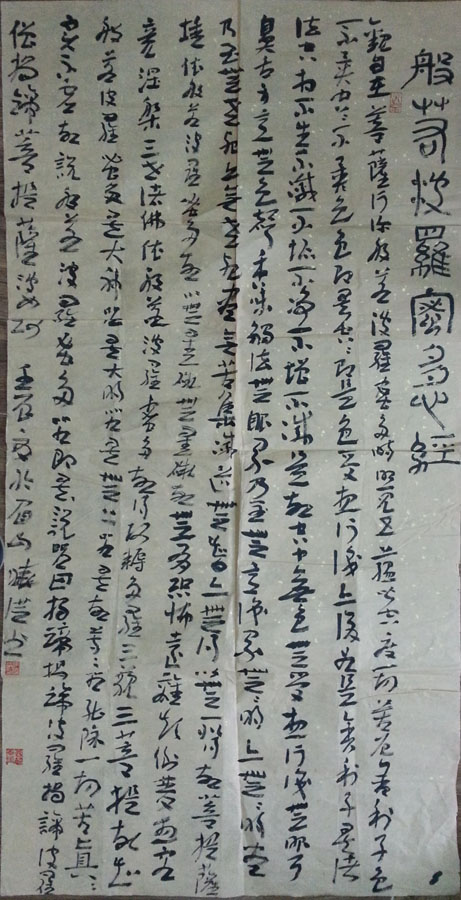 般若波羅蜜多心經
觀自在菩薩行深般若波羅蜜多時照見五蘊皆空度一切苦厄舍利子色
不異空空不異色色即是空空即是色受想行識亦復如是舍利子是諸
法空相不生不滅不垢不淨不增不減是故空中無色無受想行識無眼耳
鼻舌身意無色聲香味觸法無眼界乃至無意識界無無明亦無無明盡
乃至無老死亦無老死盡無苦集滅道無智亦無得以無所得故菩提薩
埵依般若波羅蜜多故心無罣礙無罣礙故無有恐怖遠離顛倒夢想究
竟涅槃三世諸佛依般若波羅蜜多故得阿耨多羅三藐三菩提故知
般若波羅蜜多是大神咒是大明咒是無上咒是無等等咒能除一切苦真
實不虛故說般若波羅蜜多咒即說咒曰揭諦揭諦波羅揭諦波羅
僧揭諦菩提薩婆訶 壬辰 於眉山 書